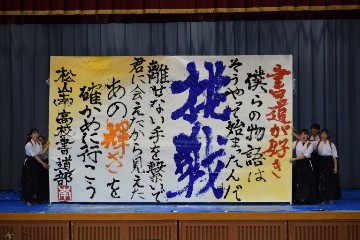 書道が好き
僕らの物語は
そうやって始まったんだ
挑戦
離せない手を繋いで
君に会えたから見えた
あの輝きを
確かめに行こう
松山南高校書道部